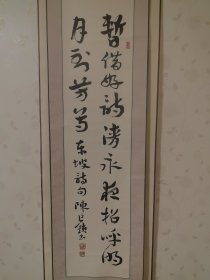 暫借好詩消永夜招呼明
月到芳尊 东坡詩句 陳巨鎖书